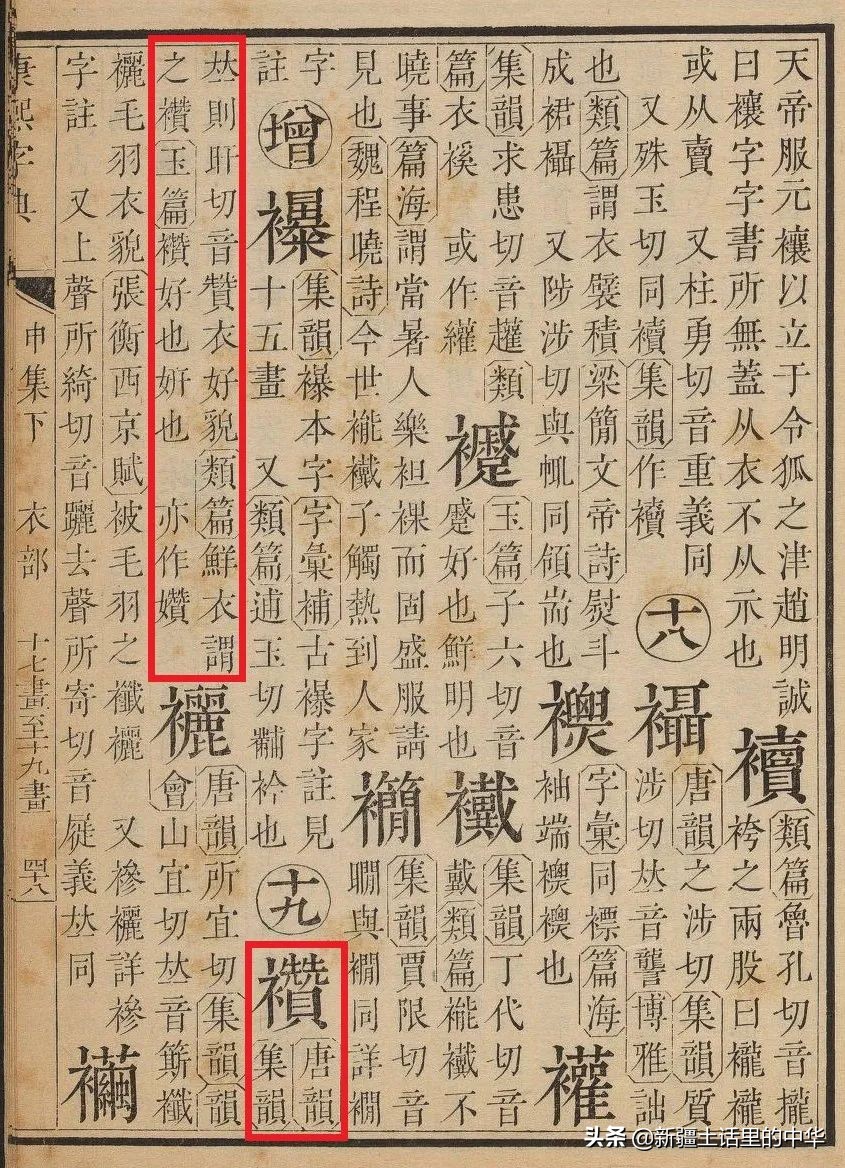 天帝服元襄以立于令狐之津趙明誠
曰襄字字書所無蓋从衣不从示也
襩
類篇魯孔切音攏
袴之兩股曰襱襱
或从賣 又柱勇切音重義同
又殊玉切同襩集韻作襩
十八
襵
唐韻之涉切集韻質
涉切𠀤音讋博雅詘
也類篇謂衣襞積梁簡文帝詩熨斗
成裙襵 又陟涉切與㡇同領耑也
字彙同褾篇海
袖端也
集韻求患切音類
篇衣 或作
玉篇子六切音
蹙好也鮮明也
襶
集韻丁代切音
戴類篇褦襶不
曉事篇海謂當暑人樂袒裸而固盛服請
見也魏程曉詩今世褦襶子觸熱到人家
襇
集韻賈限切音
與襉同詳襉
字
註
增
襮
集韻襮本字字彙補古襮字註見
十五畫 又類篇逋玉切黼衿也
十九
襸
唐韻
集韻
𠀤則旰切音贊衣好貌類篇鮮衣謂
之襸玉篇襸好也妍也 亦作㜺
襹
唐韻所宜切集韻韻
會山宜切𠀤音簁襳
襹毛羽衣貌張衡西京賦被毛羽之襳襹 又襂襹詳襂
字註 又上聲所綺切音躧去聲所寄切音屣義𠀤同
襺
康熙字典 申集下 衣部 十七畫至十九畫 四十八
头条 @新疆土话里的中华